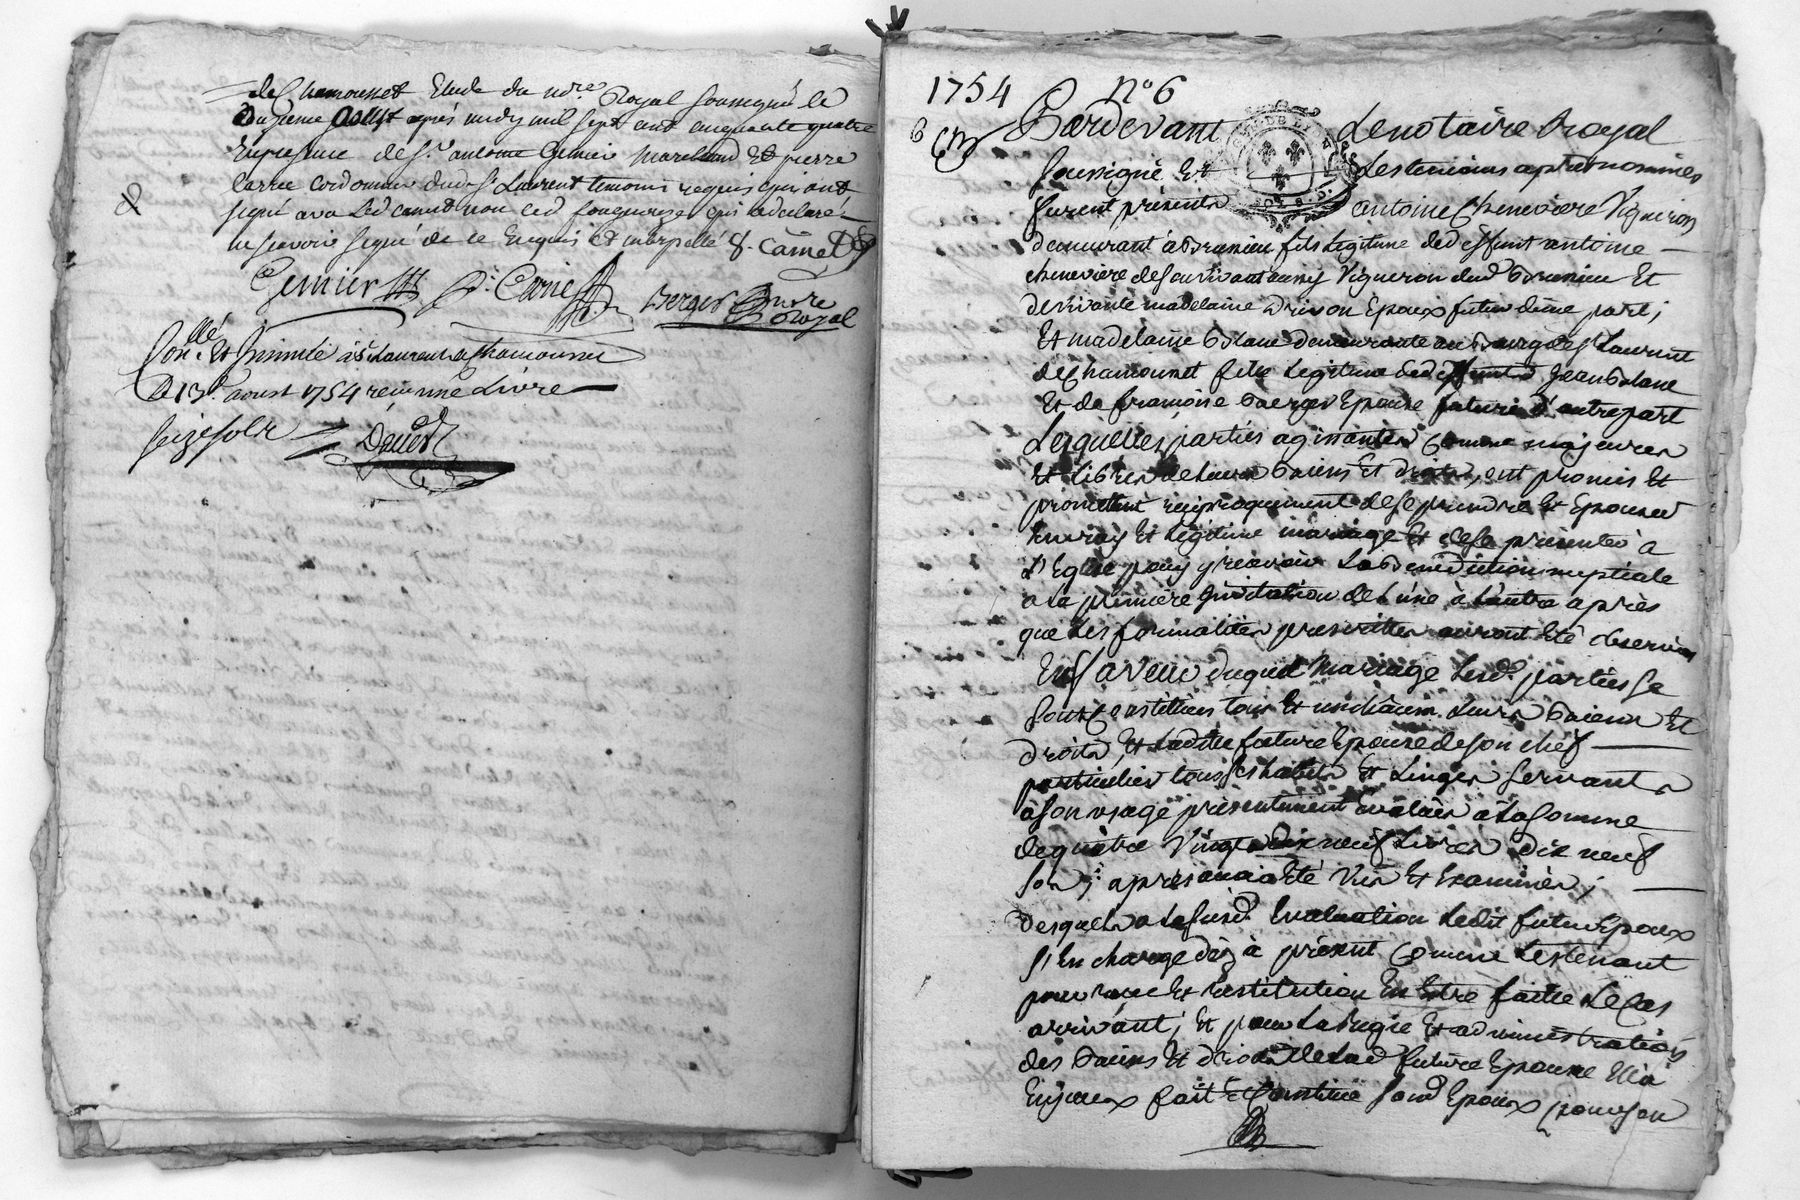 de Chamousset Etude du no.re Royal soussigné le
onzieme Aoust après midy mil sept cent cinquante quatre
en presence de s.r antoine Gemier marchand Et pierre
Carrie cordonnier dud. St Laurent temoins requis qui ont
signé avec led canet non led qui a declaré
ne scavoir signé de ce Enquis Et interpellé &. Camet
Gemier P. Carrie Berger Notre
Royal
Con.llé Et Insinué à St Laurent de Chamousset
Le 13.e aoust 1754 reçu une Livre
seize sols
1754 n° 6
Pardevant Le notaire Royal
soussigné Et Les temoins après nommés
furent présents antoine Chenevière Vigneron
demeurant à Brunieu fils Legitime de deffunt antoine
chenevière de son vivant aussy Vigneron dud Brunieu Et
de vivante madelaine Epoux futur d'une part;
Et madelaine Blanc demeurante au Bourg de St Laurent
de Chamousset fille Legitime de deffunt Jean Blanc
Et de françoise Berger Epouse future d'autre part
Lesquelles parties agissantes Comme majeures
Et Libres de Leurs Biens Et droits, ont promis Et
promettent reciproquement de se prendre Et Epouser
En vray Et Légitime mariage Et de se présenter à
L'Eglise pour y recevoir La Bénédiction nuptiale
a La première Invitation de L'une à L'autre après
que Les formalités prescrittes auront Eté observées
En faveur duquel mariage Lesd. parties se
sont Constituées tous Et un chacun Leurs Biens Et
droits, Et Ladite future Epouse de son chef
particulier tous ses habits Et Linges servants
à son usage présentement évalués à La somme
de quatre Vingt dix neuf Livres dix neuf
sols; après avoir Eté Vus Et Examinés;
desquels a Lasusd. Evaluation Ledit futur Epoux
s'En charge dès à présent Comme Les tenant
pour vue Et restitution En Etre faitte Le Cas
arrivant; Et pour La Regie Et administration
des Biens Et droits de Lad future Epouse Elle
En a fait Et Constitué sond Epoux pour son